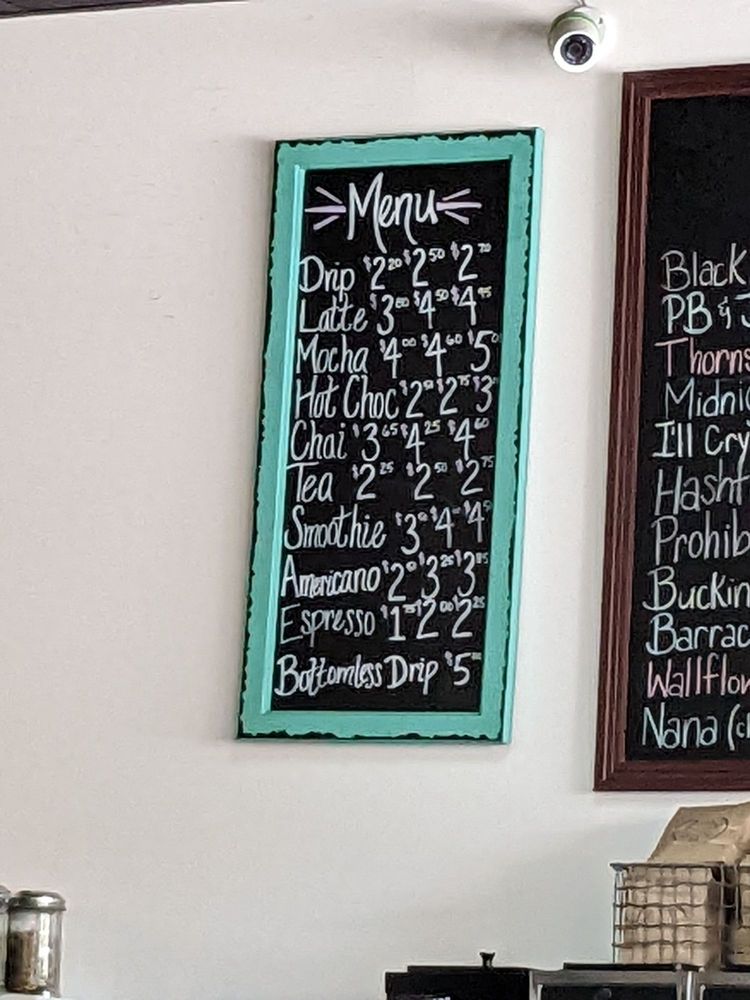 Menu
Drip $2.20 $2.50 $2.70
Latte $3 $4.50 $4
Mocha $4.00 $4.60 $5
Hot Choc $2 $2.75 $3
Chai $3.65 $4.25 $4.60
Tea $2.25 $2.50 $2.75
Smoothie $3 $4 $4
Americano $2 $3.25 $3
Espresso $1 $2.00 $2.25
Bottomless Drip $5
Black
PB &
Thorns
Midni
I'll Cry
Hash
Prohib
Buckin
Barrac
Wallflow
Nana (